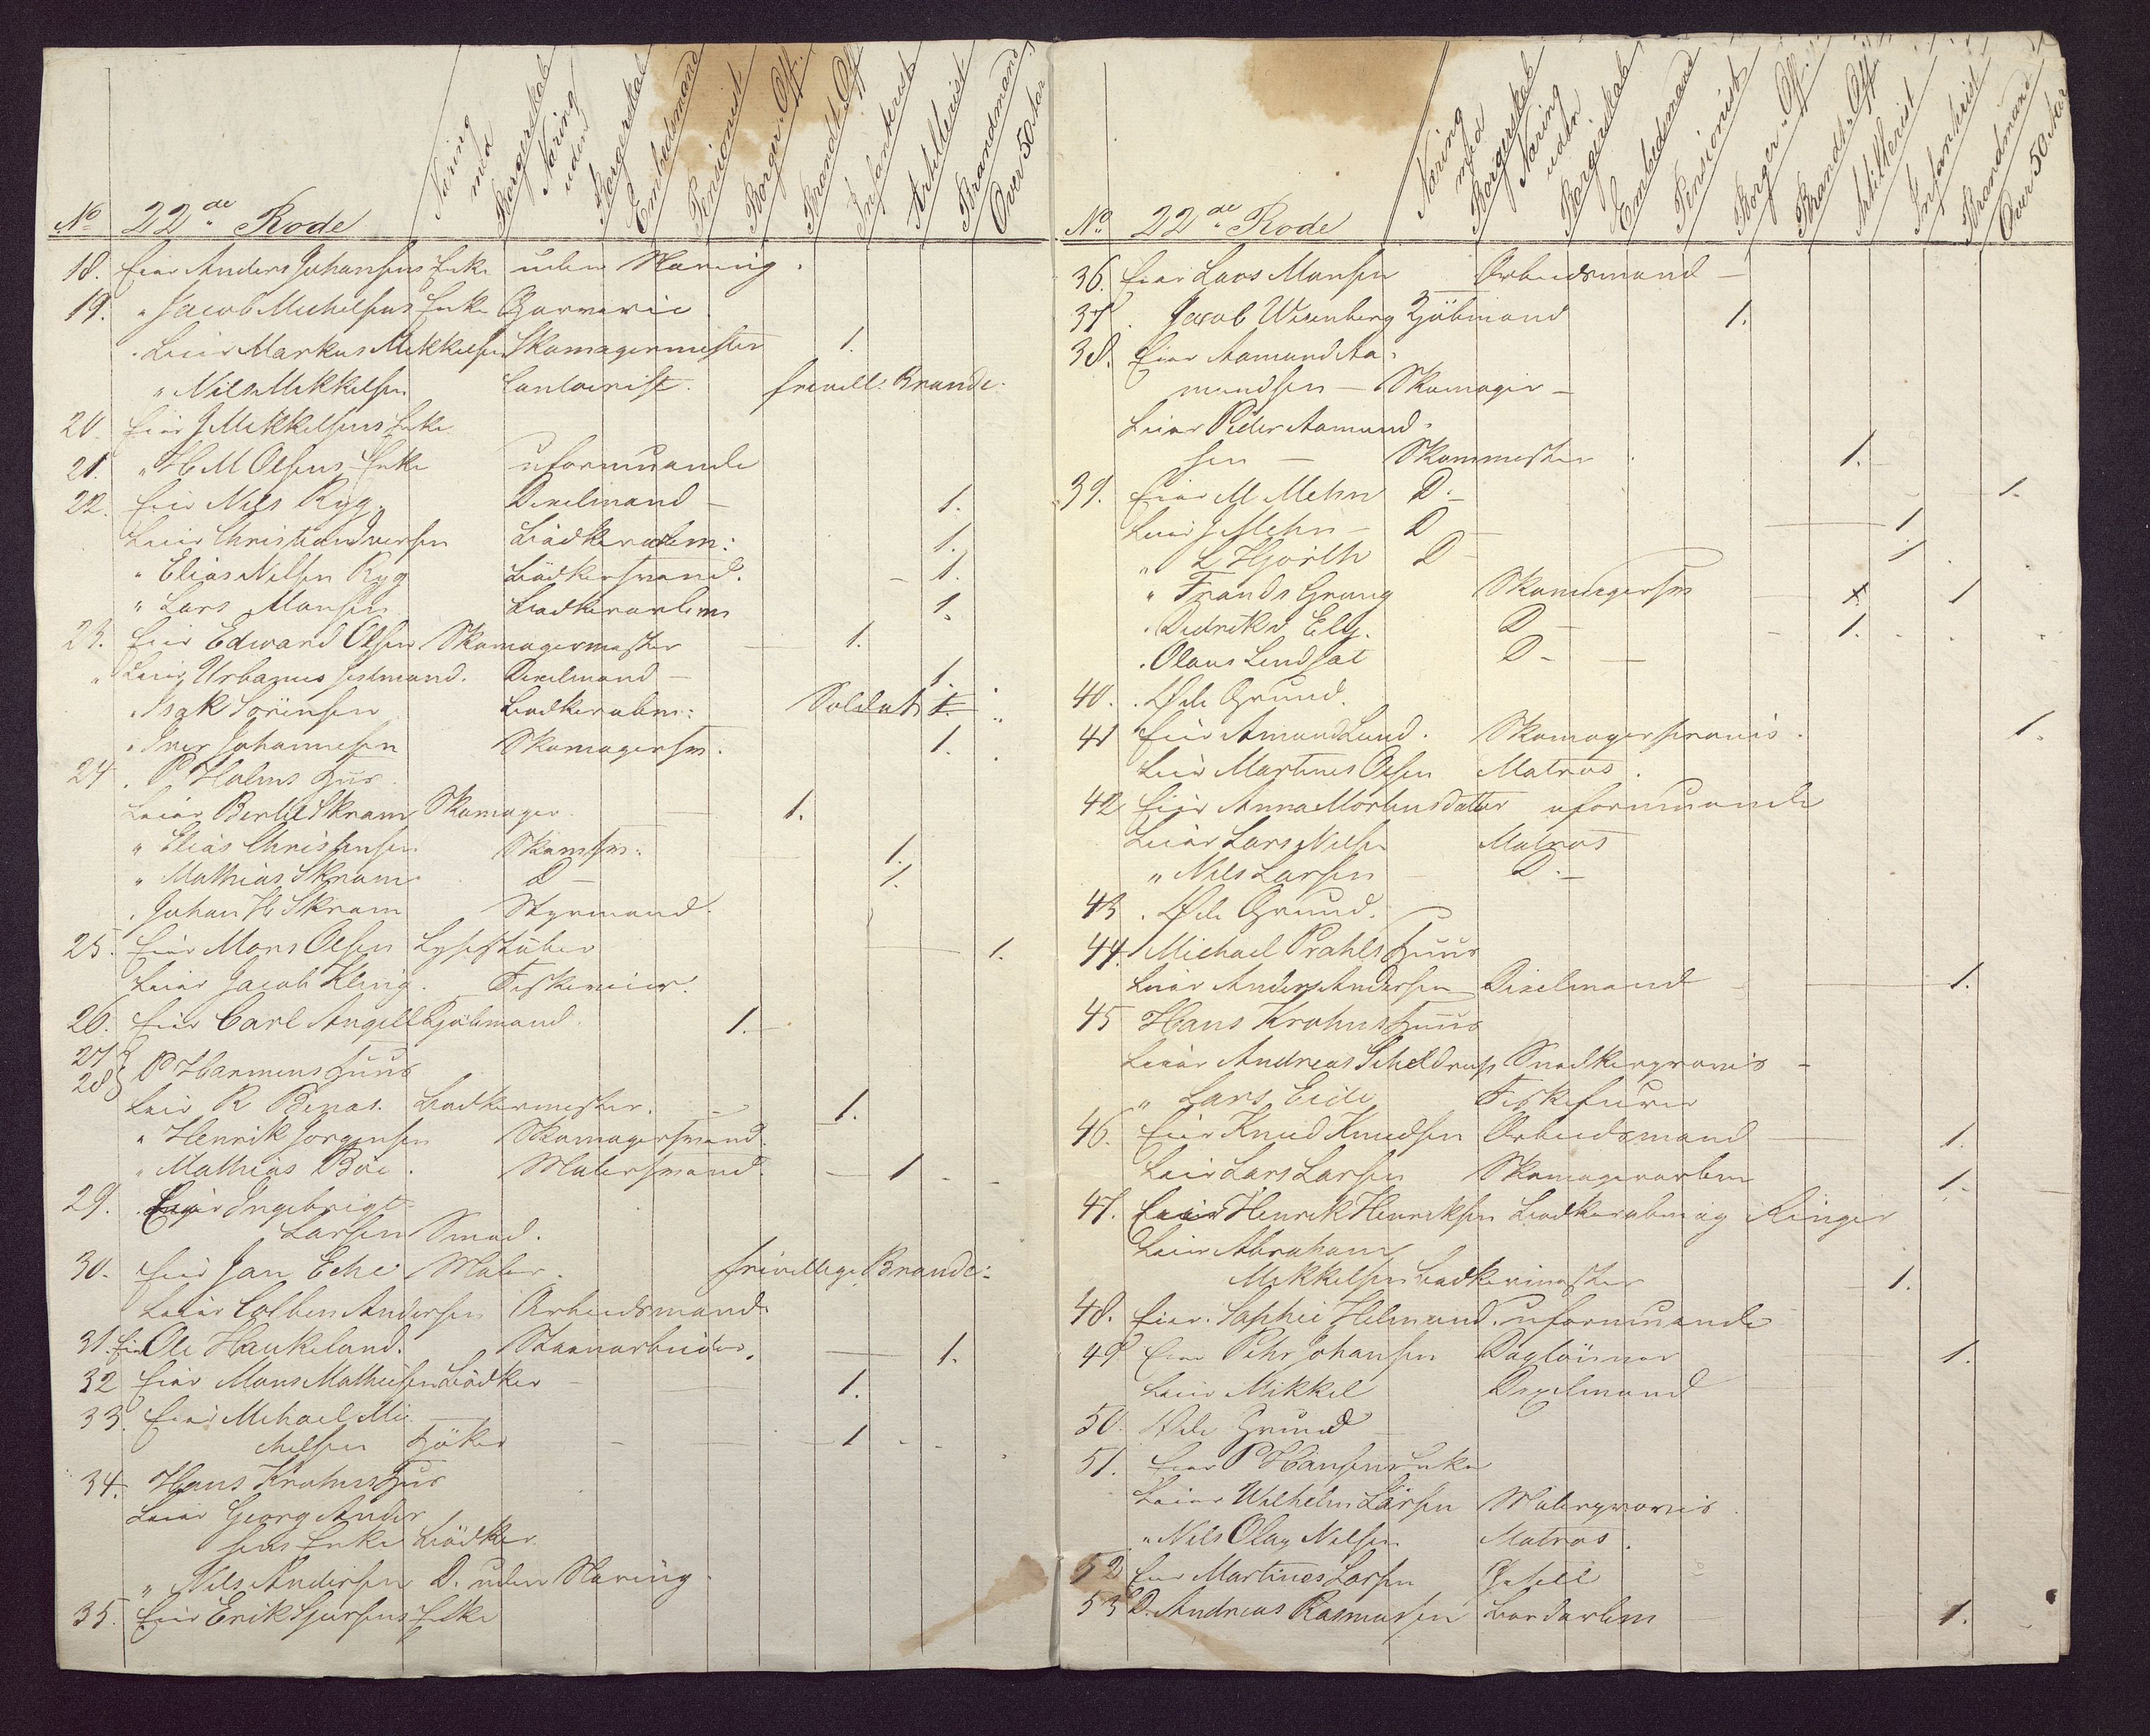 Næring med Borgerskab
Næring uden Borgerskab
Embedsmand
Pensionist
Borger Off.
Brandt Off
Infanterist
Artillerist
Brandmand
Over 50 Aar
No 22de Rode
18. Eier Anders Johansens Enke uden Næring.
19. " Jacob Michelsens Enke Garverie
. Leier Markus Mikkelsen Skomagermester 1.
" Nils Mikkelsen Contorist. frivill. Brandt.
20 Eier J Mikkelsens Enke
21. " H M Olsens Enke uformuende
22. Eier Nils Ryg. Dreelmand - 1.
Leier Christian Iversen Bödkerarbm: 1.
" Elias Nilsen Ryg Bödkersvend. - 1.
" Lars Monsen Bödkerarbm 1.
23. Eier Edward Olsen Skomagermester 1.
" Leier Urbanus Dreelmand - 1.
. Isak Sörensen Bödkerarbm: Soldat 1.
. Iver Johannesen Skomagersv. 1.
24 . P Holms Huus
Leier Bertil Skram Skomager 1.
" Elias Christensen Skomsv. 1.
" Mathias Skram D - 1.
. Johan H Skram Styrmand.
25. Eier Mons Olsen Lysestöber 1.
Leier Jacob Kling. Fiskerier.
26. Eier Carl Angell Kjöbmand. 1.
27
28 P Harmens Huus
Leier R Benas. Bödkermester. 1.
" Henrik Jorgensen Skomagersvend.
" Mathias Böe. Malersvend. - 1 - -
29. Eier Ingebrigt
Larsen Smed.
30. Eier Jan Eche Maler. frivillige Brandt:
Leier Colben Andersen Arbeidsmand.
31. Eier Ole Haukeland. Steenarbeider. 1.
32 Eier Mons Mathiesen Bödker - 1.
33. Eier Mihael Mi-
chelsen Höker - 1 - -
34. Hans Krohns Huus
Leier Georg Ander
sens Enke Bödker.
" Nils Andersen D. uden Næring.
35. Eier Erik Sjursens Enke
Næring med Borgerskab
Næring uden Borgerskab
Embedsmand
Pensionist
Borger Off.
Brandt Off.
Artillerist
Infanterist
Brandmand
Over 50 Aar
No 22de Rode
36. Eier Lars Monsen Arbeidsmand -
37. Jacob Wesenberg Kjöbmand 1.
38. Eier Aamund Aa-
mundsen - Skomager -
Leier Peder Aamund-
sen - Skommester 1.
39. Eier M Mehn D. - 1.
Leier J Mehn - D - 1
" L Hjorth D - 1
" Frands Grung Skomagersv 1 1
. Didrik v Elg. D - - 1.
. Olaus Lindsat D -
40. . Öde Grund.
41 Eier Amund Lund. Skomagersvend. 1.
Leier Martinus Olsen Matros.
42 Eier Anna Mortensdatter uformuende
Leier Lars Nilsen Matros
" Nils Larsen D. -
43 . Öde Grund.
44. Michael Prahls Huus
Leier Anders Andersen Dreelmand - 1.
45 Hans Krohns Huus
Leier Andreas Scheldrup Snedkersvend -
" Lars Eide Fiskefører
46. Eier Knud Knudsen Arbeidsmand 1.
Leier Lars Larsen Skomagerarbm 1.
47. Eier Henrik Henriksen Bödkerarbm og Ringer
Leier Abraham
Mikkelsen Bödkermester 1.
48. Eier. Saphie Helmand. uformuende
49 Eier Pehr Johansen Daglönner 1.
Leier Mikkel Dreelmand
50. Öde Grund -
51. Eier P Hansens Enke
Leier Wilhelm Larsen Malersvend.
" Nils Olay Nilsen Matros.
52 Eier Martines Larsen
53 D. Andreas Rasmussen Bordarbm 1.